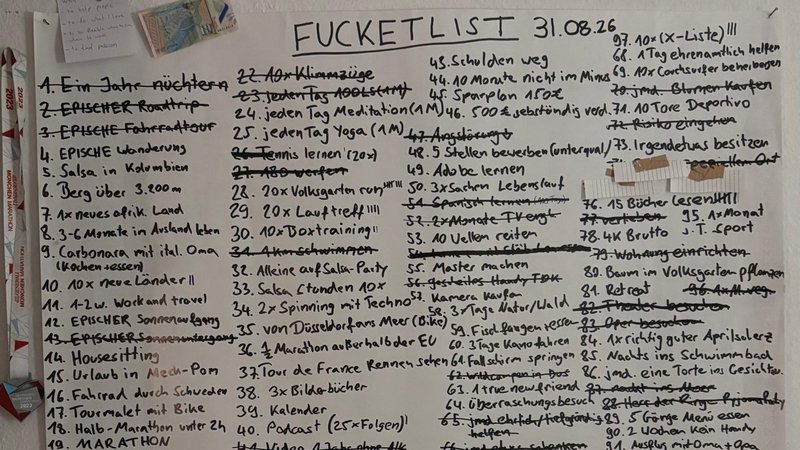 - to help people
- to do what I love
- to find passion
10
FUCKETLIST 31.08.26
1. Ein Jahr nüchtern
2. EPISCHER Roadtrip
3. EPISCHE Fahrradtour
4. EPISCHE Wanderung
5. Salsa in Kolumbien
6. Berg über 3.200m
7. 1x neues afrik. Land
8. 3-6 Monate im Ausland leben
9. Carbonara mit ital. Oma
(kochen+essen)
10. 10x neue Länder II
11. 1-2 w. Work and travel
12. EPISCHER Sonnenaufgang
13. EPISCHER Sonnenuntergang
14. Housesitting
15. Urlaub in Meck-Pom
16. Fahrrad durch Schweden
17. Tourmalet mit Bike
18. Halb-Marathon unter 2h
19. MARATHON
22. 10x Klimmzüge
23. jeden Tag 100LS (1M)
24. jeden Tag Meditation (1M)
25. jeden Tag Yoga (1M)
26. Tennis lernen (20x)
27. 180 werfen
28. 20x Volksgarten run
29. 20x Lauftreff IIII
30. 10x Boxtraining II
31. 4 km schwimmen
32. Alleine auf Salsa-Party
33. Salsa Stunden 10x
34. 2x Spinning mit Techno
35. von Düsseldorf ans Meer (Bike)
36. ½ Marathon außerhalb der EU
37. Tour de France Rennen sehen
38. 3x Bilderbücher
39. Kalender
40. Podcast (25x Folgen) I
41. Video 1 Jahr ohne Alk
43. Schulden weg
44. 10 Monate nicht im Minus
45. Sparplan 150€
46. 500€ selbständig verd.
47. Angststörung
48. 5 Stellen bewerben (unterqual.)
49. Adobe lernen
50. 3x Sachen Lebenslauf
51. Spanisch lernen
52. 2x Monate TV
53. 10 Wellen reiten
55. Master machen
56. geteiltes Handy TDK
57. Kamera kaufen
58. 3x Tage Natur/Wald
59. Fisch fangen+essen
60. 3 Tage Kanofahren
61. Fallschirm springen
62. wildcampen in
63. 1 true new friend
64. Überraschungsbesuch
65. jmd. ehrlich/tiefgründig
helfen
97. 10x (X-Liste) IIII
68. 1 Tag ehrenamtlich helfen
69. 10x Couchsurfer beherbergen
70. jmd. Blumen kaufen
71. 10 Tore Deportivo
72. Risiko eingehen
73. Irgendetwas besitzen
Ort
76. 15 Bücher lesen
77. verlieben
95. 1x Monat
J.T. Sport
78. 4K Brutto
79. Wohnung einrichten
80. Baum im Volksgarten pflanzen
81. Retreat
96. 1x M. veg.
82. Theater besuchen
83. Oper besuchen
84. 1x richtig guter Aprilscherz
85. Nachts ins Schwimmbad
86. jmd. eine Torte ins Gesicht
87. nackt ins Meer
89. 5 Gänge Menü essen
90. 2 Wochen kein Handy
91. Ausflug mit Oma+Opa
2023
MÜNCHEN MARATHON